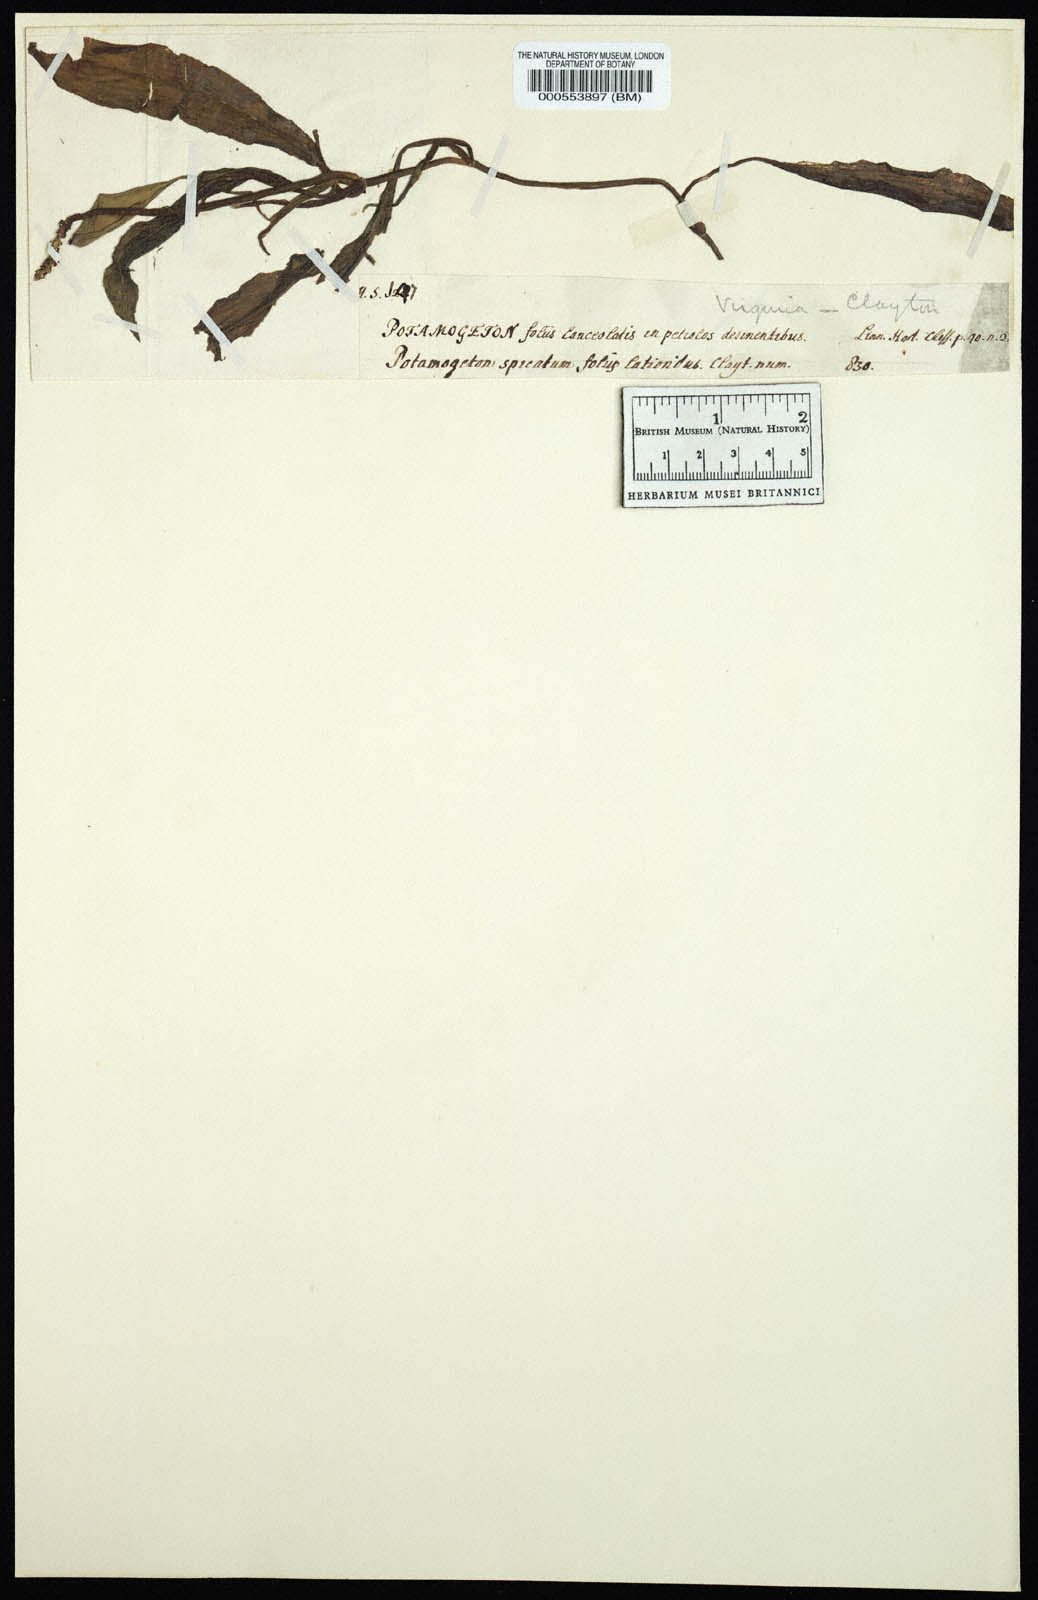 THE NATURAL HISTORY MUSEUM, LONDON
DEPARTMENT OF BOTANY
000553897 (BM)
Virginia – Clayton
POTAMOGETON foliis lanceolatis in petiolos desinentibus. Linn. Hort. Cliff. p. 40. n.
Potamogeton spicatum foliis latioribus. Clayt. num. 830.
1 2
BRITISH MUSEUM (NATURAL HISTORY)
1 2 3 4 5
HERBARIUM MUSEI BRITANNICI